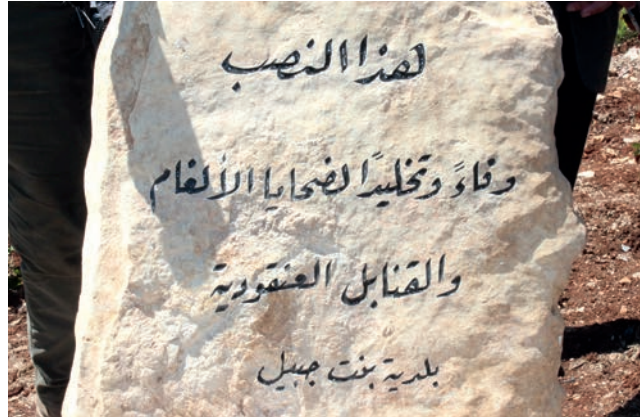 هذا النصب
وفاءً وتخليدًا لضحايا الألغام
والقنابل العنقودية
بلدية بنت جبيل